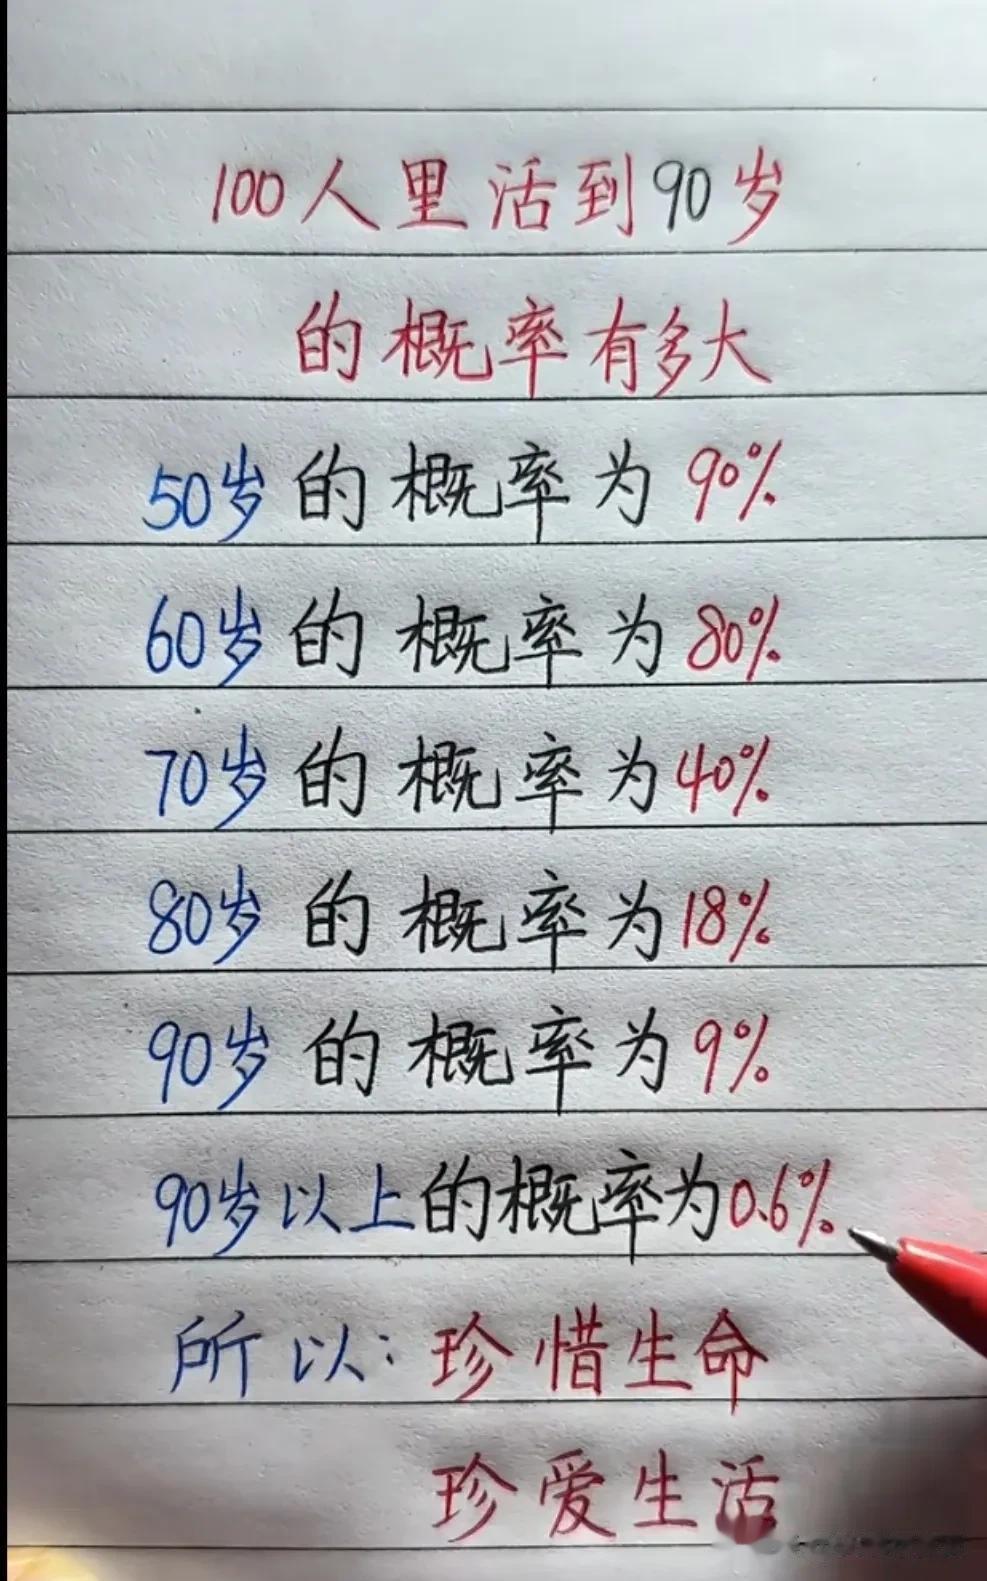 100人里活到90岁
的概率有多大
50岁的概率为90%
60岁的概率为80%
70岁的概率为40%
80岁的概率为18%
90岁的概率为9%
90岁以上的概率为0.6%
所以:珍惜生命
珍爱生活